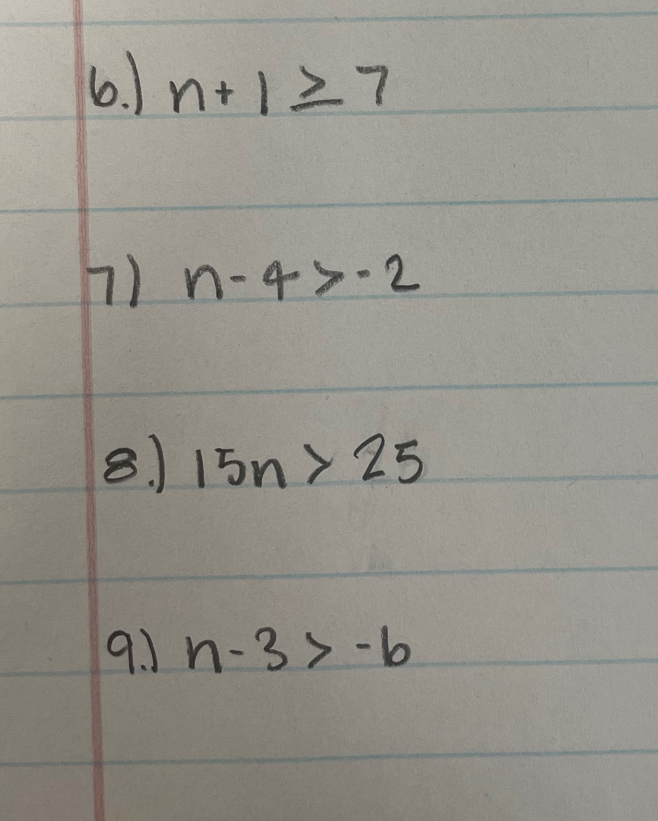 6.) n + 1 ≥ 7
7) n - 4 > -2
8.) 15n > 25
9.) n - 3 > -6